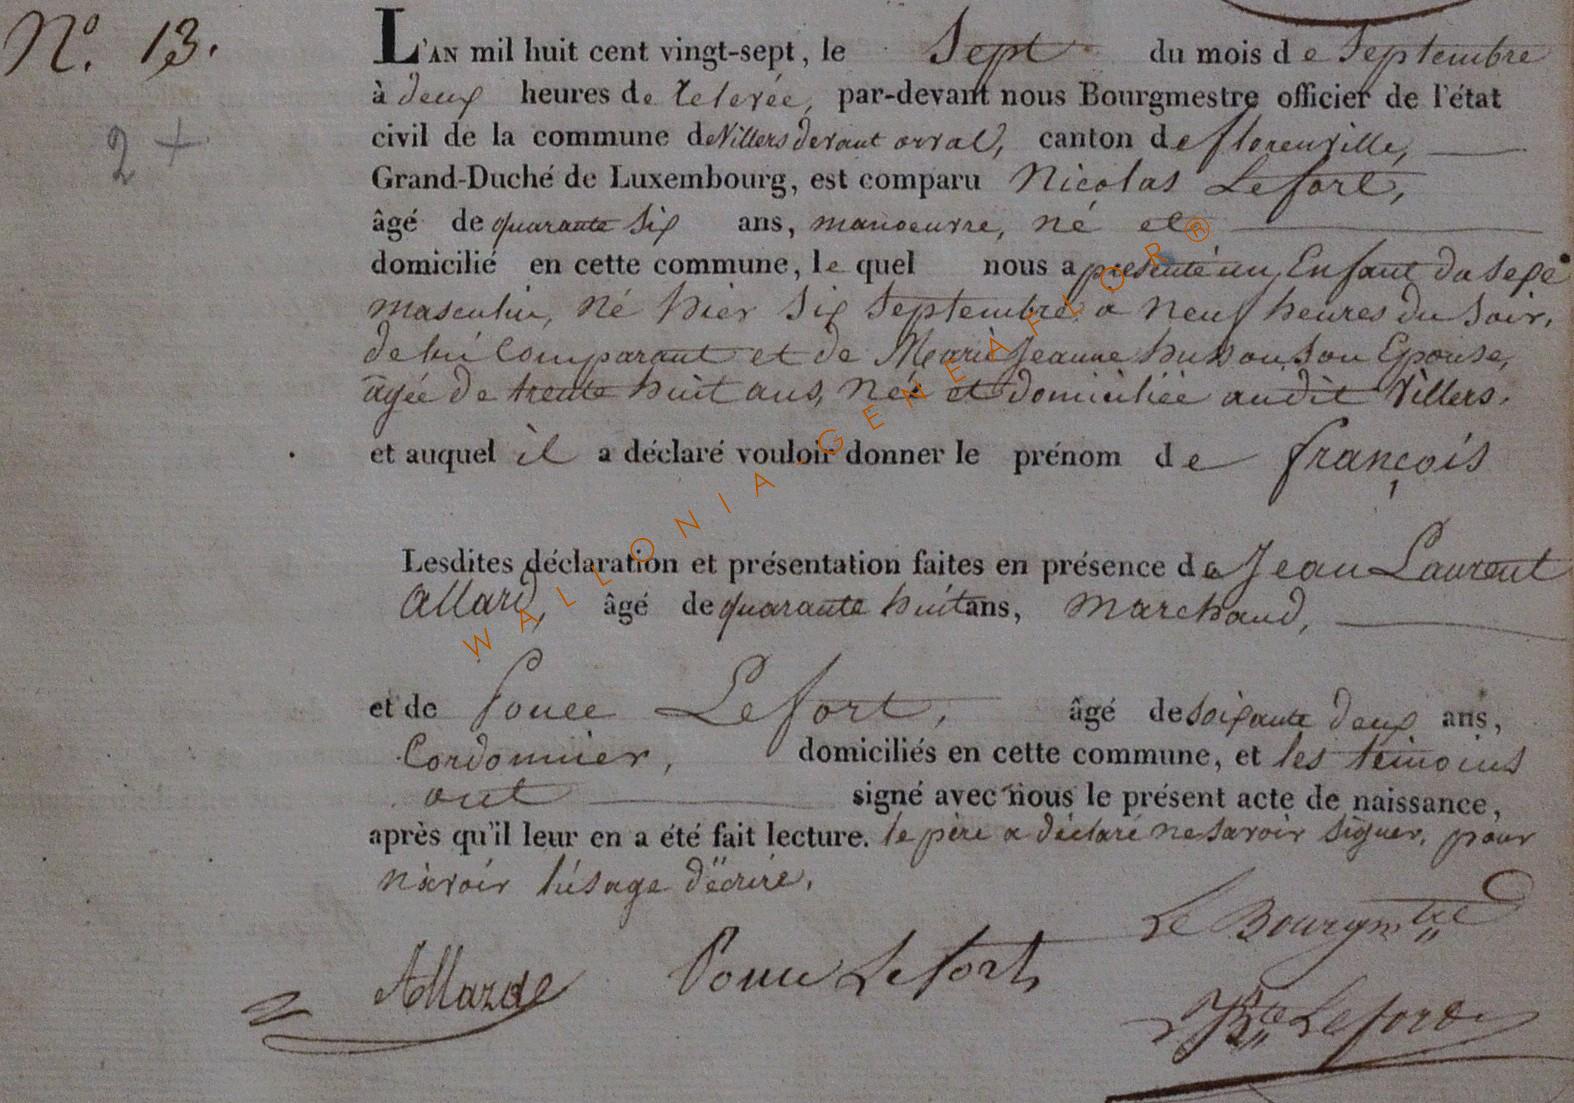 N.º 13.
2 +
L'AN mil huit cent vingt-sept, le Sept du mois de Septembre
à deux heures de relevée, par-devant nous Bourgmestre officier de l'état
civil de la commune de Villers devant orval, canton de florenville,
Grand-Duché de Luxembourg, est comparu Nicolas Lefort,
âgé de quarante six ans, manoeuvre, né et
domicilié en cette commune, le quel nous a presenté un Enfant du sexe
masculin, né hier six Septembre a neuf heures du soir,
de lui Comparant et de Marie Jeanne husson, son Epouse,
agée de trente huit ans, née et domiciliée audit Villers.
et auquel il a déclaré vouloir donner le prénom de françois
Lesdites déclaration et présentation faites en présence de Jean Laurent
allard, âgé de quarante huit ans, marchand,
et de Lefort, âgé de soixante deux ans,
Cordonnier, domiciliés en cette commune, et les témoins
ont signé avec nous le présent acte de naissance,
après qu'il leur en a été fait lecture. le père a déclaré ne savoir signer, pour
n'avoir l'úsage d'écrire.
Le Bourgm.tre
Allarde Lefort
J Bte Lefort
WALLONIA-GENEAFLOR®